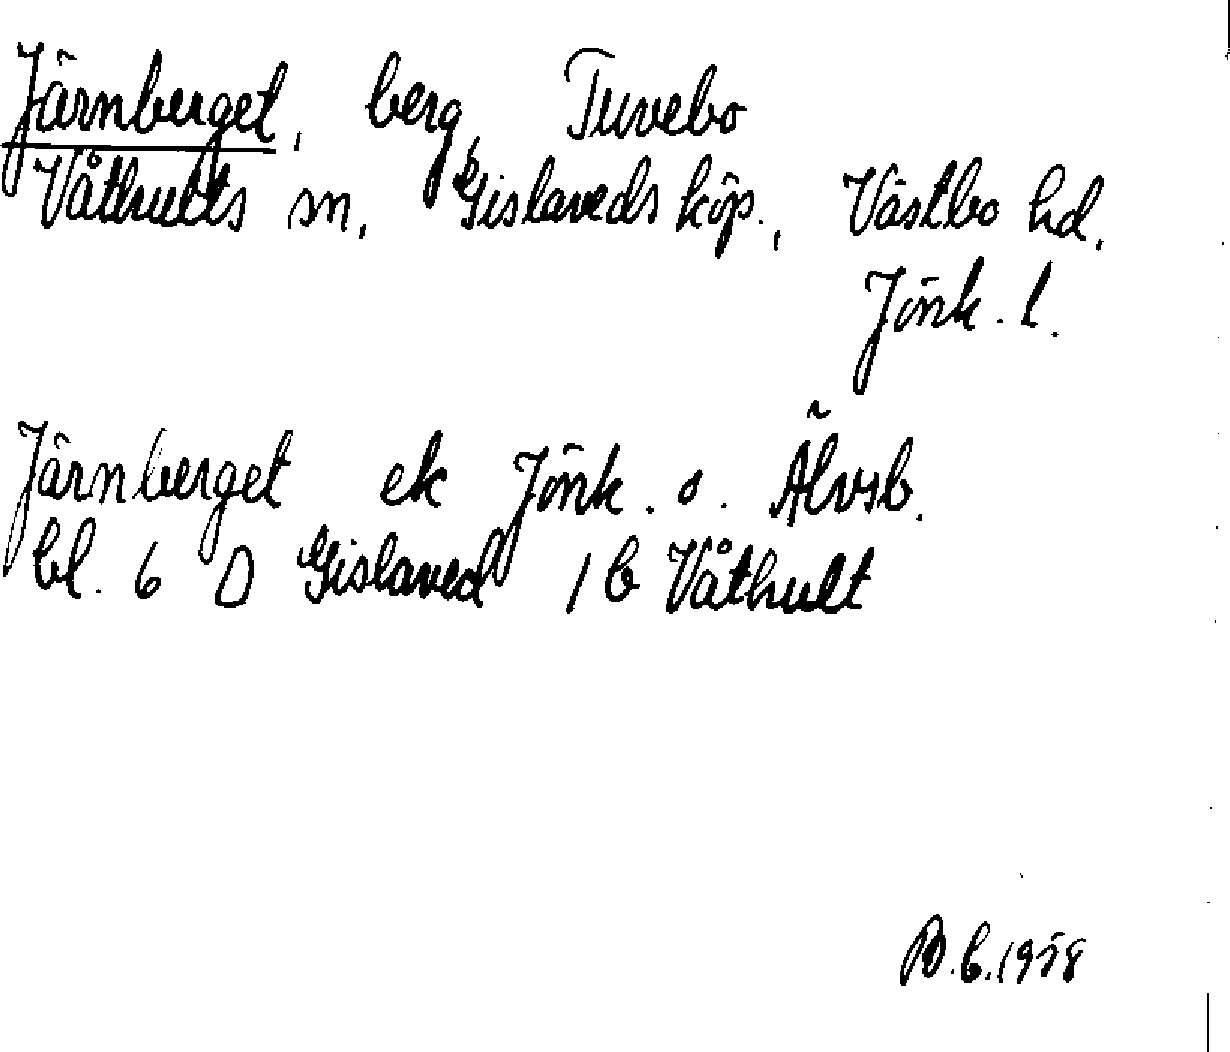 Järnberget, berg, Tuvebo
Våthults sn, Gislaveds köp., Västbo hd,
Jönk. l.
Järnberget ek Jönk. o. Älvsb.
bl. 6 D Gislaved 1 b Våthult
B.C. 1958